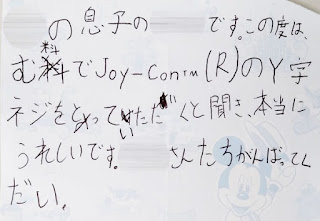 の息子の です。この度は、
む料でJoy-Con™(R)のY字
ネジをとっていただくと聞き、本当に
うれしいです。 さんたちがんばってく
だい。